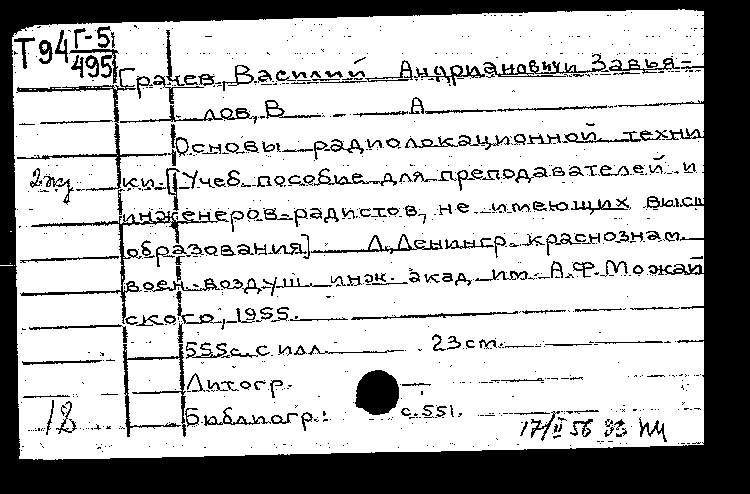 Т94 Г-5
495
Грачев, Василий Андрианович и Завья=
лов, В А
Основы радиолокационной техни
2 экз ки. [Учеб. пособие для преподавателей и
инженеров-радистов, не имеющих высш
образования] Л., Ленингр. краснознам.
воен.-воздуш. инж. акад. им. А.Ф. Можай
ского, 1955.
555с. с илл. 23 cm.
Литогр.
18 Библиогр.: с. 551.
17/II 56